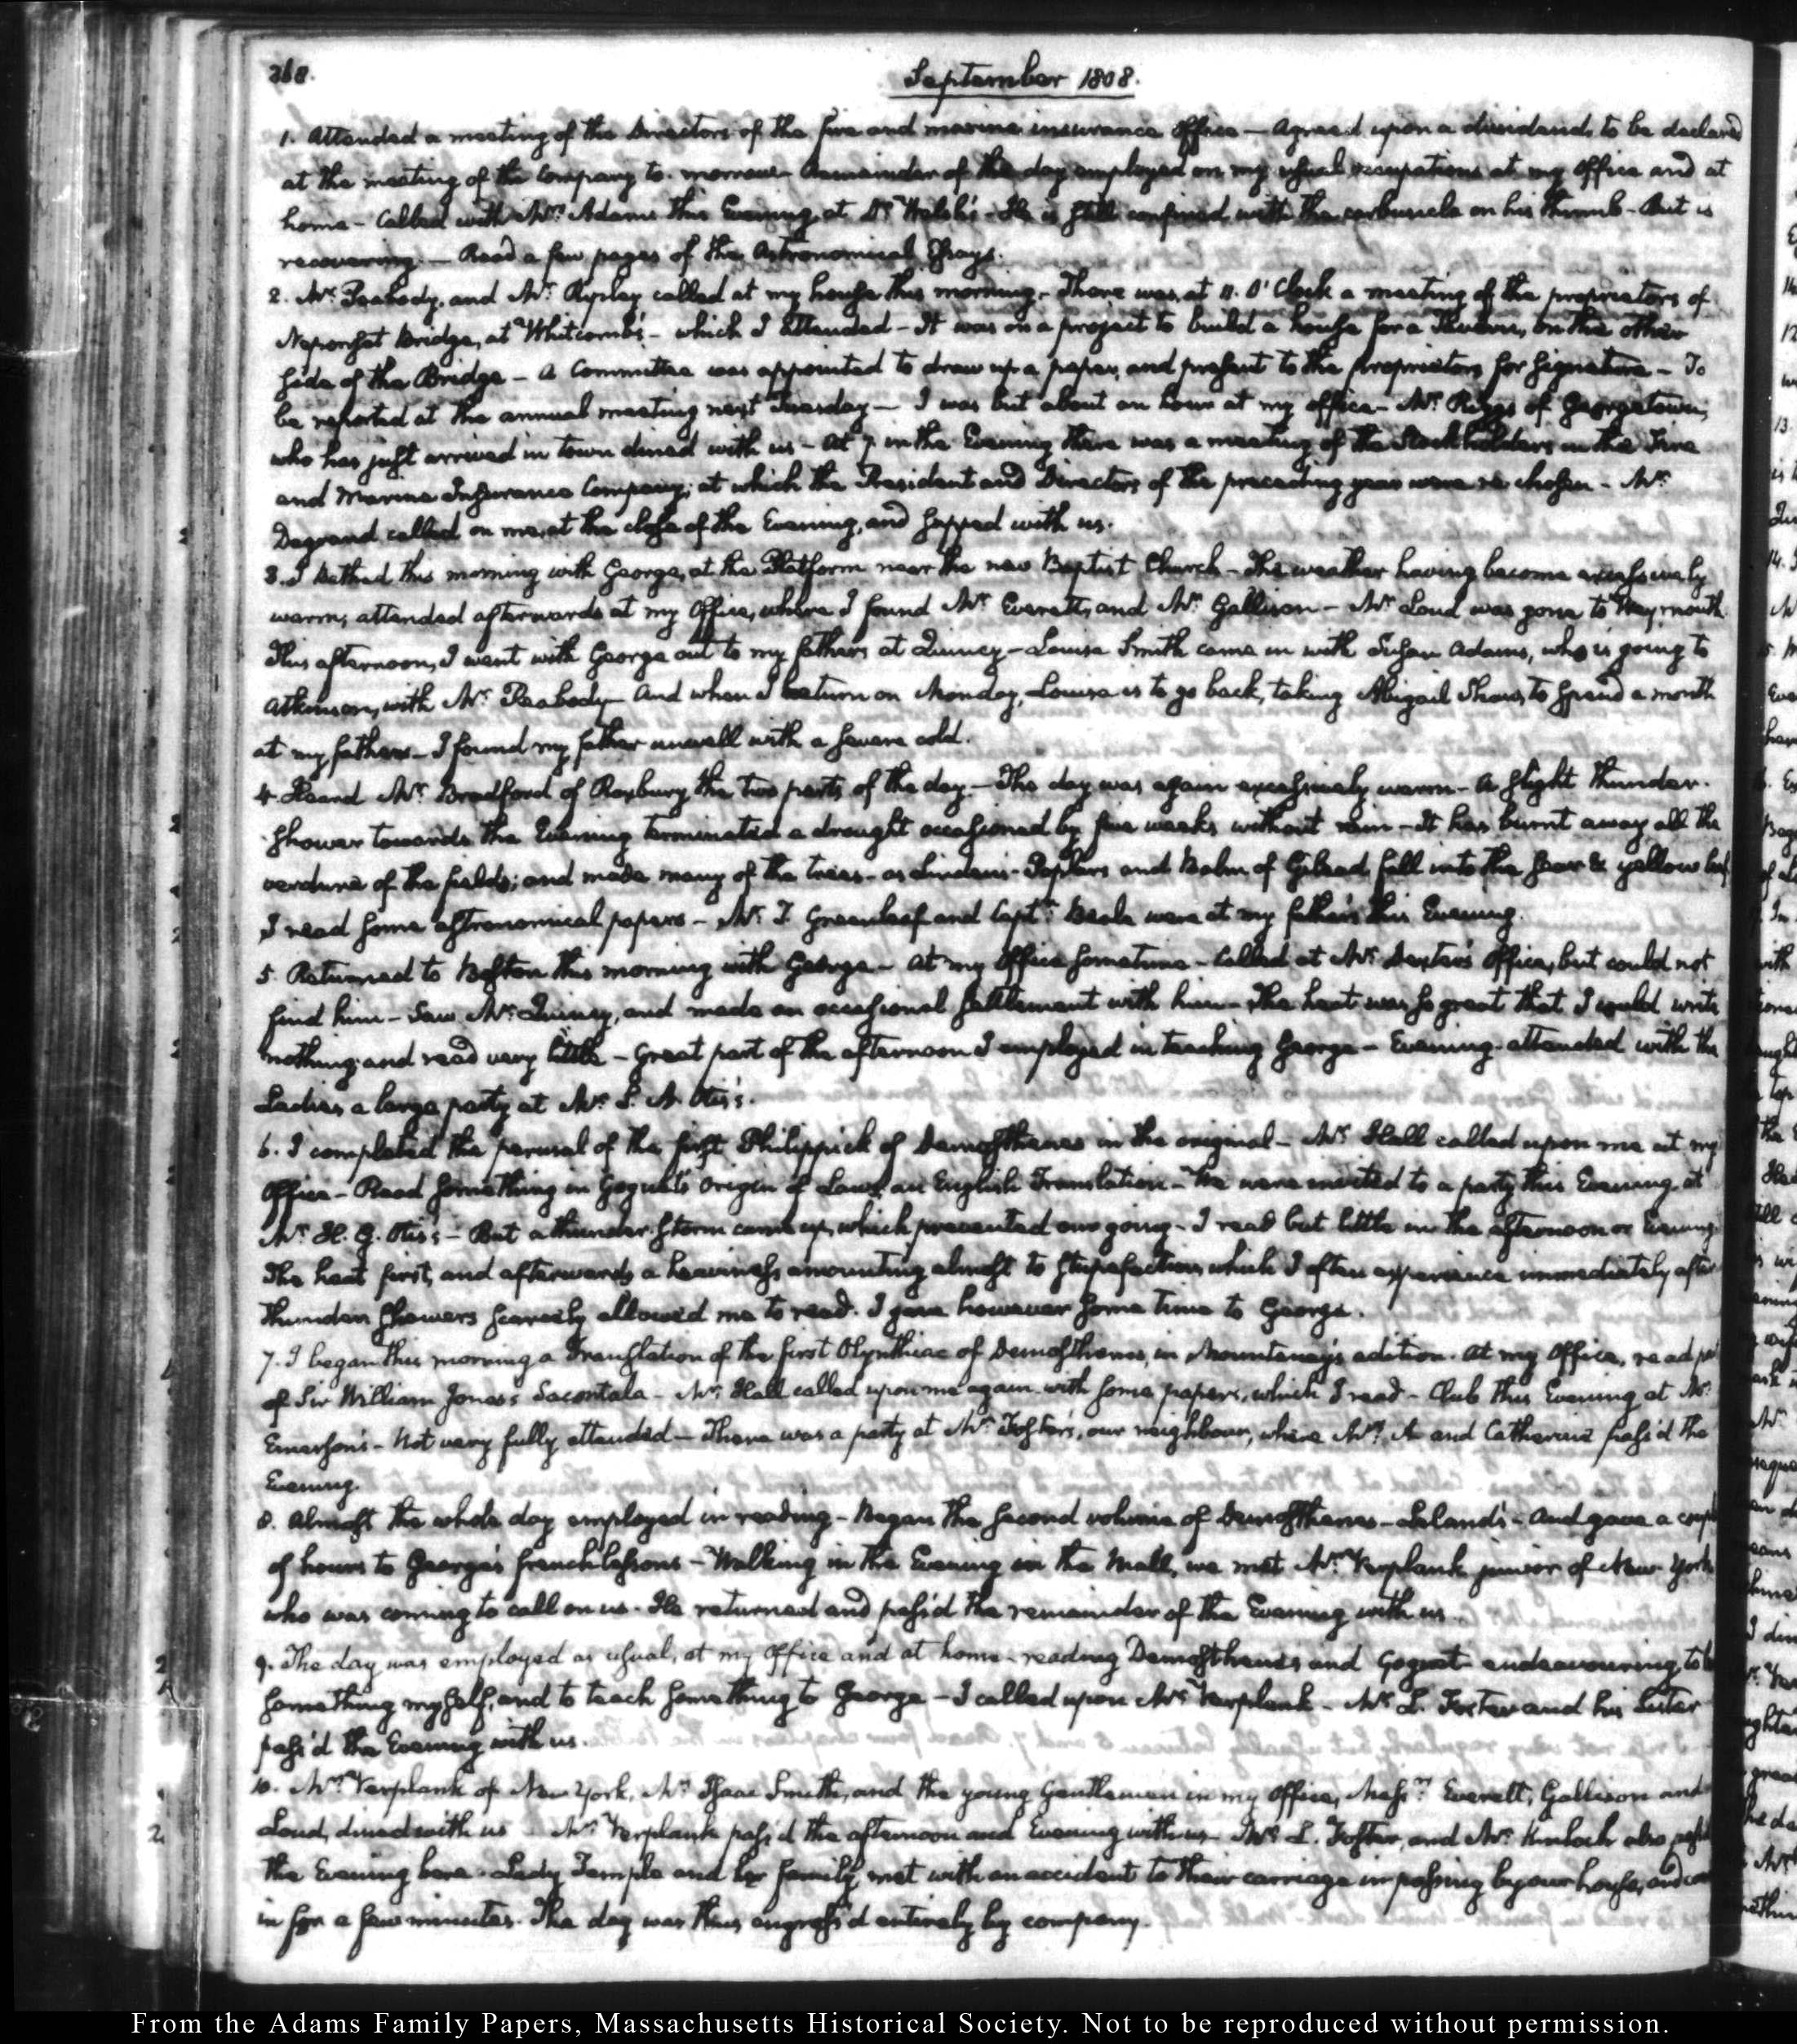 368.
September 1808.
1. Attended a meeting of the Directors of the fire and marine insurance Office — Agreed upon a dividend, to be declared
at the meeting of the Company to-morrow — Remainder of the day employed on my usual occupations at my Office and at
home — Called with Mrs. Adams this Evening, at Dr. Welsh's — He is still confined with the carbuncle on his thumb — But is
recovering. — Read a few pages of the Astronomical Essays.
2. Mr. Peabody, and Mr. Ripley called at my house this morning. — There was, at 11. O'Clock a meeting of the proprietors of
Neponset Bridge, at Whitcomb's — which I attended — It was on a project to build a house for a Tavern, on the other
side of the Bridge — A Committee was appointed to draw up a paper, and present to the proprietors for signature — To
be reported at the annual meeting next Tuesday — I was but about an hour at my office — Mr. Riggs of Georgetown,
who has just arrived in town dined with us — At 7 in the Evening there was a meeting of the Stockholders in the Fire
and Marine Insurance Company; at which the President and Directors of the preceding year were re-chosen — Mr.
Degrand called on me, at the close of the Evening, and supped with us.
3. I bathed this morning with George, at the Platform near the new Baptist Church — The weather having become excessively
warm, attended afterwards at my Office, where I found Mr. Everett, and Mr. Gallison — Mr. Loud was gone to Weymouth
This afternoon, I went with George out to my father's at Quincy — Louisa Smith came in with Susan Adams, who is going to
Atkinson, with Mr. Peabody — And when I return on Monday, Louisa is to go back, taking Abigail Shaw, to spend a month
at my fathers — I found my father unwell with a severe cold.
4. Heard Mr. Bradford of Roxbury the two parts of the day — The day was again excessively warm — A slight thunder-
shower towards the Evening terminated a drought occasioned by five weeks without rain — It has burnt away all the
verdure of the fields; and made many of the trees — as Lindens — Poplars and Balm of Gilead fall into the sear & yellow leaf
I read some astronomical papers — Mr. T. Greenleaf and Captn. Beale were at my father's this Evening.
5. Returned to Boston this morning with George — At my Office sometime — Called at Mr. Dexter's Office, but could not
find him — Saw Mr. Quincy, and made an occasional settlement with him — The heat was so great that I could write
nothing and read very little — Great part of the afternoon I employed in teaching George — Evening attended with the
Ladies a large party at Mr. S. A. Otis's.
6. I completed the perusal of the first Philippick of Demosthenes in the original — Mr. Hall called upon me at my
Office — Read something in Goguet's Origin of Laws, an English Translation — We were invited to a party this Evening at
Mr. H. G. Otis's — But a thunder-storm came up, which prevented our going — I read but little in the afternoon or Evening
The heat first, and afterwards a heaviness amounting almost to stupefaction, which I often experience immediately after
thunder showers scarcely allowed me to read. I gave however some time to George.
7. I began this morning a Translation of the first Olynthiac of Demosthenes, in Mountenay's edition. At my Office, read
of Sir William Jones's Sacontala — Mr. Hall called upon me again with some papers, which I read — Club this Evening at Mr.
Emerson's — Not very fully attended — There was a party at Mr. Foster's, our neighbour, where Mrs. A. and Catherine pass'd the
Evening.
8. Almost the whole day employed in reading — Began the second volume of Demosthenes — Leland's — And gave a couple
of hours to George's french lessons — Walking in the Evening in the Mall, we met Mr. Verplank junior of New-York
who was coming to call on us. He returned and pass'd the remainder of the Evening with us.
9. The day was employed as usual, at my Office and at home — reading Demosthenes and Goguet — endeavouring to
something myself, and to teach something to George — I called upon Mr. Verplank — Mr. L. Foster and his Sister
pass'd the Evening with us.
10. Mr. Verplank of New York, Mr. Isaac Smith, and the young Gentlemen in my Office, Messrs. Everett, Gallison and
Loud, dined with us — Mr. Verplank pass'd the afternoon and Evening with us — Mr. L. Foster, and Mr. Kinloch also pass'd
the Evening here. Lady Temple and her family met with an accident to their carriage in passing by our house, and came
in for a few minutes. The day was thus engross'd entirely by company.
From the Adams Family Papers, Massachusetts Historical Society. Not to be reproduced without permission.